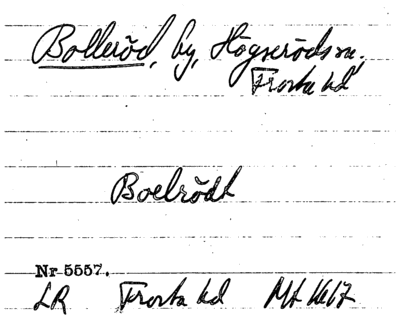 Bolleröd, by, Högseröds sn.
Frosta hd
Boelrödt
Nr 5557.
LR Frosta hd Mt 1617